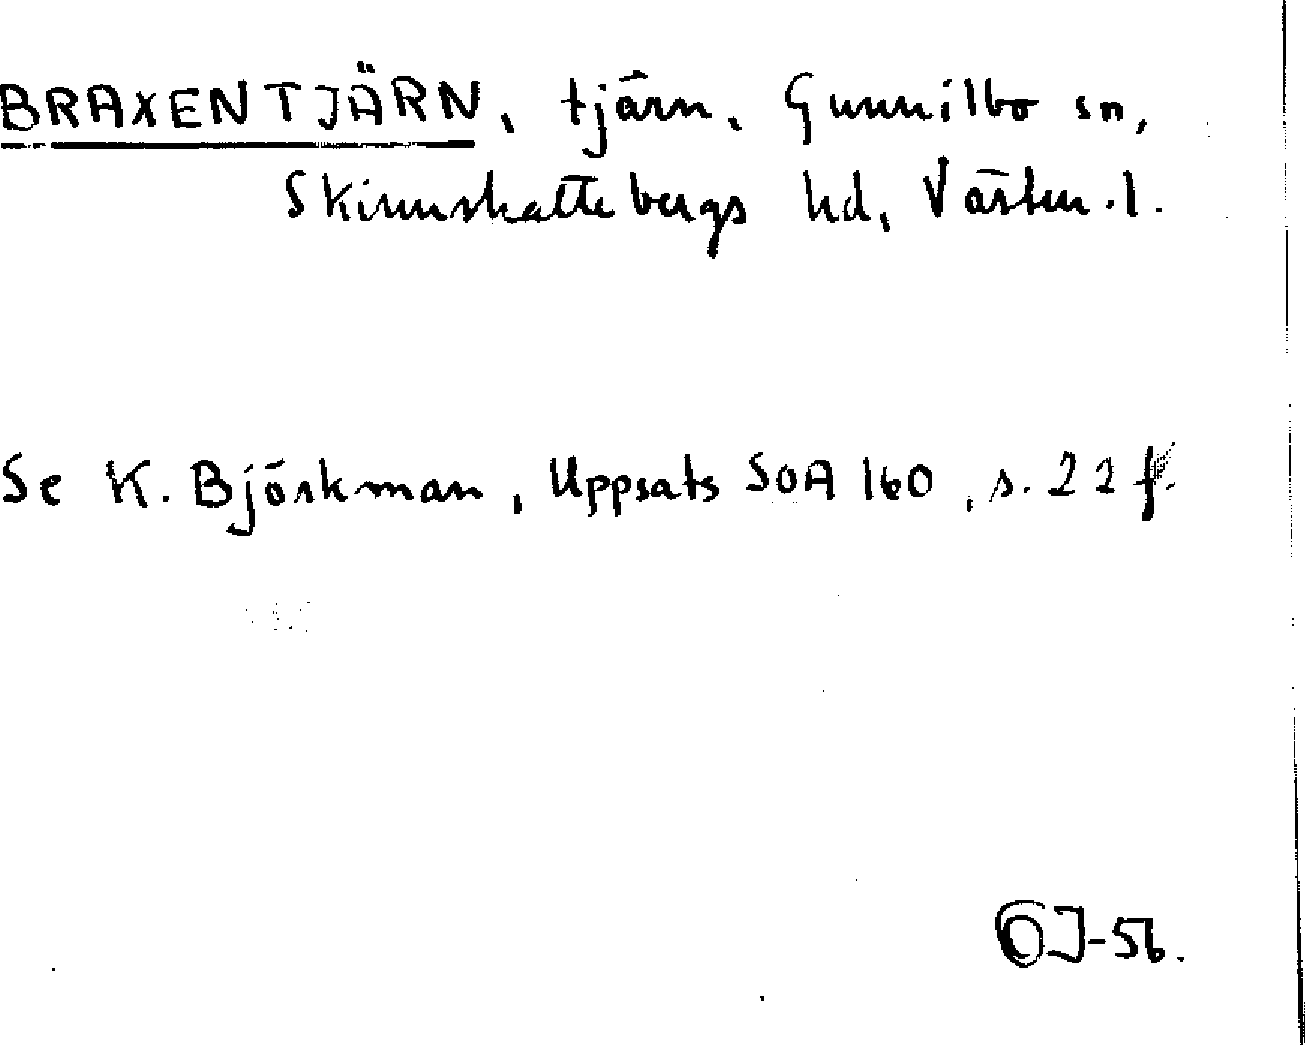 BRAXENTJÄRN, tjärn, Gunnilbo sn,
Skinnskattebergs hd, Västm. l.
Se K. Björkman, Uppsats SOA 160, s. 22 f.
OJ-56.